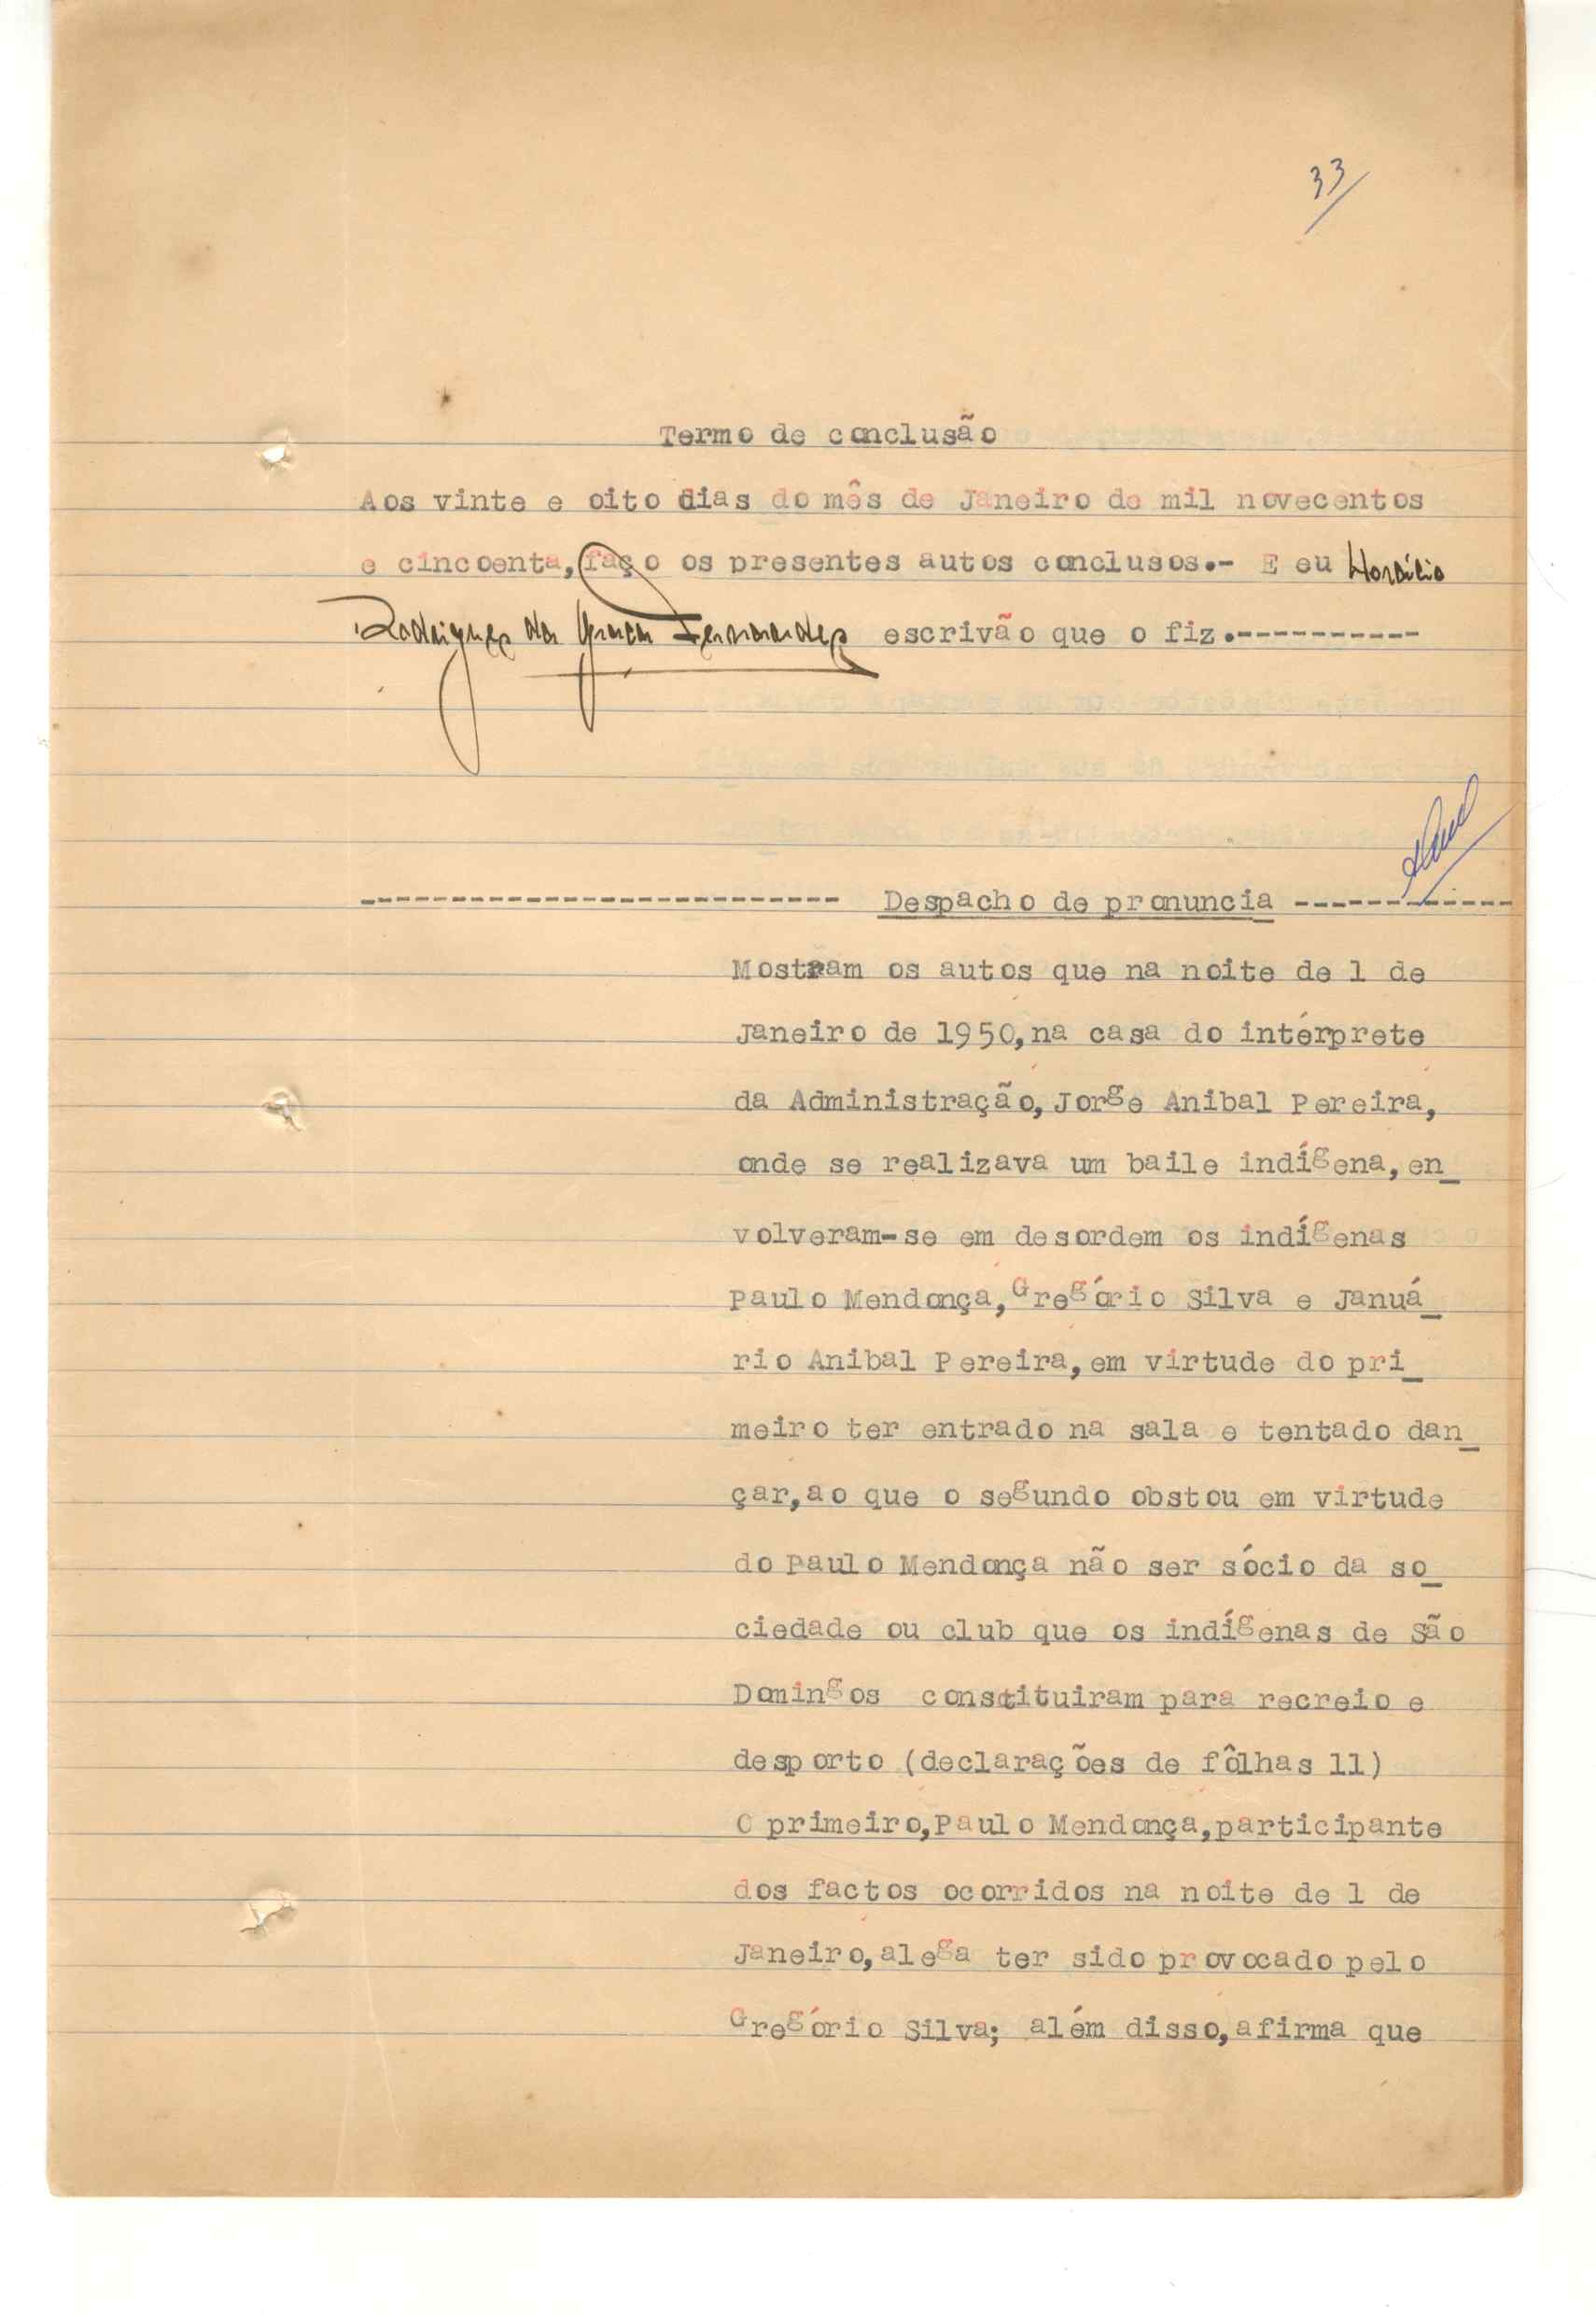 33
Termo de conclusão
Aos vinte e oito dias do mês de Janeiro de mil novecentos
e cincoenta, faço os presentes autos conclusos.- E eu Horácio
Rodrigues da Graça Fernandes escrivão que o fiz.-----------
-------------------------- Despacho de pronuncia ------------
Mostram os autos que na noite de 1 de
Janeiro de 1950, na casa do intérprete
da Administração, Jorge Anibal Pereira,
onde se realizava um baile indígena, en_
volveram-se em desordem os indígenas
Paulo Mendonça, Gregório Silva e Januá_
rio Anibal Pereira, em virtude do pri_
meiro ter entrado na sala e tentado dan_
çar, ao que o segundo obstou em virtude
do Paulo Mendonça não ser sócio da so_
ciedade ou club que os indígenas de São
Domingos constituiram para recreio e
desporto (declarações de fôlhas 11)
O primeiro, Paulo Mendonça, participante
dos factos ocorridos na noite de 1 de
Janeiro, alega ter sido provocado pelo
Gregório Silva; além disso, afirma que